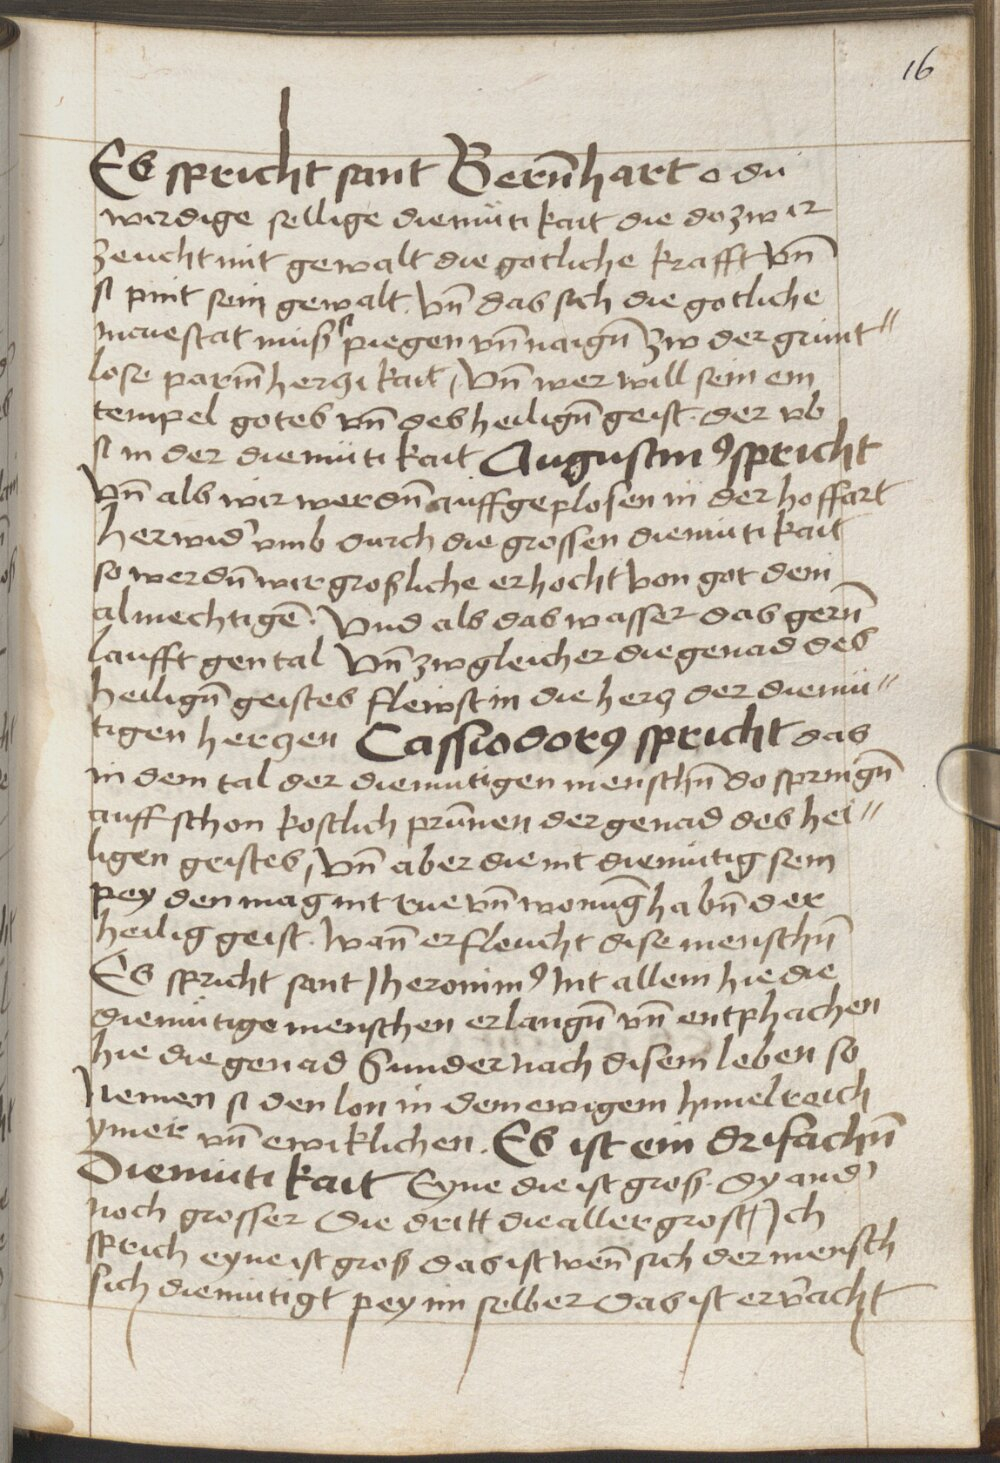 16
Es spricht sant Bern̄hart o du
wirdige sellige diemüti kait die do zw ir
zeucht mit gewalt die gotliche krafft vn̄
si pint sein gewalt. Vn̄ das sich die gotliche
maiestat muß piegen vn̄ naign̄ zw der grunt"
lose parm̄herczikait, Vn̄ wer will sein ein
tempel gotes vn̄ des heilign̄ geist. der vb
si in der diemüti kait Augustin9 spricht
Vn̄ als wir werdn̄ auffgeplosen in der hoffart
herwid' vmb durch die grossen diemüti kait
so werdn̄ wir großliche erhocht von got dem
almechtigē. Vnd als das wasser das gern̄
laufft gen tal Vn̄ zw gleicher die genad des
heilign̄ geistes flewst in die hercz der diemü"
tigen herczen Cassiodor9 spricht das
in dem tal der diemutigen menschn̄ do springn̄
auff schon kostlich prūnen der genad des hei"
ligen geistes, Vn̄ aber die nit diemütig sein
pey den mag nit rue vn̄ wonūg habn̄ der
heilig geist. Wan̄ er fleucht dise menschn̄
Es spricht sant Iheronim9 Nit allein hie die
diemütige menschen erlangn̄ vn̄ entphachen
hie die genad Sunder nach disem leben so
Nemen si den lon in dem ewigem himelreich
ymer vn̄ ewiklichen. Es ist ein drifachn̄
Diemüti kait Eyne die ist groß. Dy and'
noch grosser Die dritt die aller grost, Ich
sprich eyne ist groß das ist wen̄ sich der mensch
sich diemütigt pey im selber Das ist er v'acht